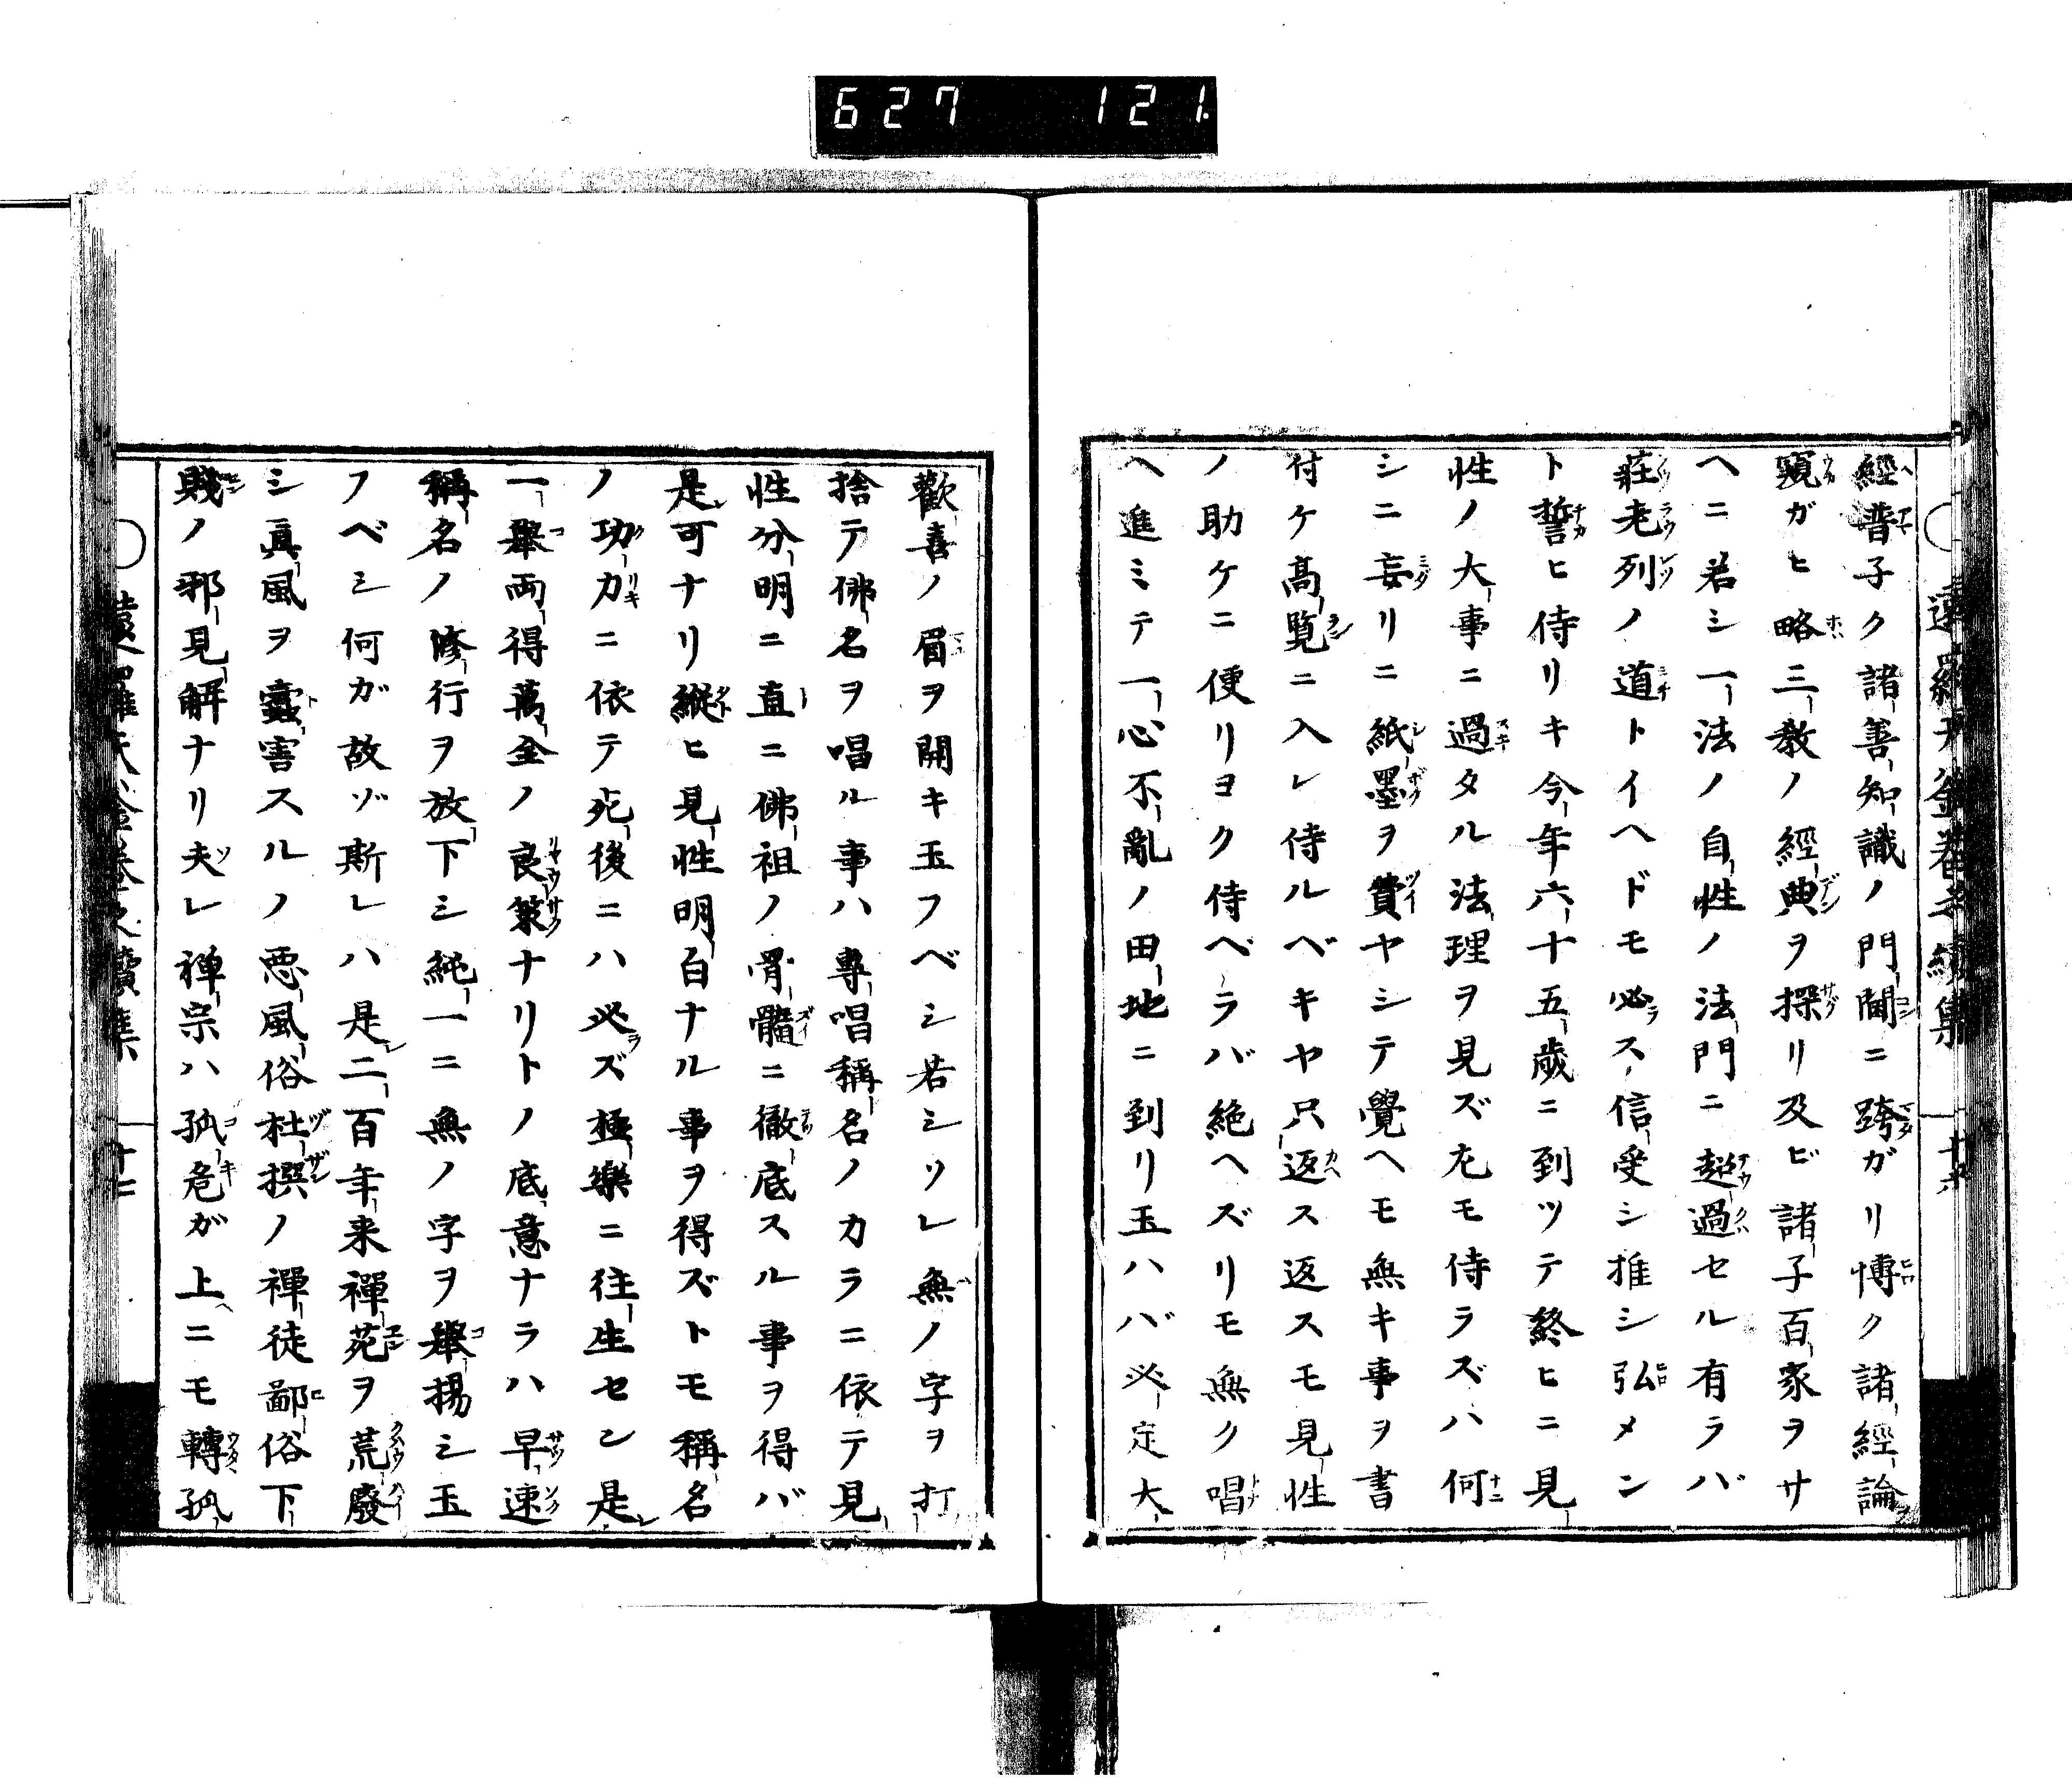 627 121
經普子ク諸善知識ノ門閫ニ跨ガリ博ク諸經論
窺ガヒ略三教ノ經典ヲ探リ及ビ諸子百家ヲサ
ヘニ若シ一法ノ自性ノ法門ニ超過セル有ラバ
莊老列ノ道トイヘドモ必ス信受シ推シ弘メン
ト誓ヒ侍リキ今年六十五歳ニ到ツテ終ヒニ見
性ノ大事ニ過タル法理ヲ見ズ尤モ侍ラズハ何
シニ妄リニ紙墨ヲ費ヤシテ覺ヘモ無キ事ヲ書
付ケ高覧ニ入レ侍ルベキヤ只返ス返スモ見性
ノ助ケニ便リヨク侍ベラバ絶ヘズリモ無ク唱
ヘ進ミテ一心不亂ノ田地ニ到リ玉ハバ必定大
歡喜ノ眉ヲ開キ玉フベシ若シソレ無ノ字ヲ打
捨テ佛名ヲ唱ル事ハ專唱稱名ノカラニ依テ見
性分明ニ直ニ佛祖ノ骨髓ニ徹底スル事ヲ得バ
是可ナリ縱ヒ見性明白ナル事ヲ得ズトモ稱名
ノ功力ニ依テ死後ニハ必ズ極樂ニ往生セン是
一舉両得萬全ノ良策ナリトノ底意ナラハ早速
稱名ノ修行ヲ放下シ純一ニ無ノ字ヲ舉揚シ玉
フベシ何ガ故ゾ斯レハ是二百年来禪苑ヲ荒廢
シ真風ヲ蠧害スルノ悪風俗杜撰ノ禪徒鄙俗下
賎ノ邪見解ナリ夫レ禅宗ハ孤危ガ上ニモ轉孤